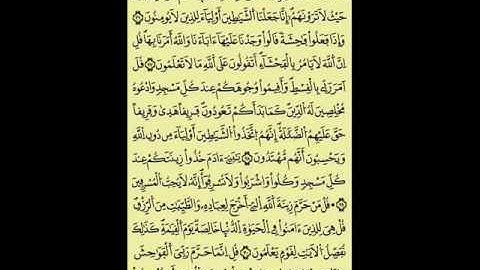 حَيْثُ لَا تَرَوْنَهُمْ إِنَّا جَعَلْنَا الشَّيَٰطِينَ أَوْلِيَآءَ لِلَّذِينَ لَا يُومِنُونَ
وَإِذَا فَعَلُوا۟ فَٰحِشَةً قَالُوا۟ وَجَدْنَا عَلَيْهَآ ءَابَآءَنَا وَاللَّهُ أَمَرَنَا بِهَا قُلِ
اِنَّ اللَّهَ لَا يَامُرُ بِالْفَحْشَآءِ اَتَقُولُونَ عَلَى اللَّهِ مَا لَا تَعْلَمُونَ قُلَ
اَمَرَ رَبِّے بِالْقِسْطِ وَأَقِيمُوا۟ وُجُوهَكُمْ عِندَ كُلِّ مَسْجِدٍ وَادْعُوهُ
مُخْلِصِينَ لَهُ الدِّينَ كَمَا بَدَأَكُمْ تَعُودُونَ فَرِيقاً هَدَىٰ وَفَرِيقاً
حَقَّ عَلَيْهِمُ الضَّلَٰلَةُ إِنَّهُمُ اتَّخَذُوا۟ الشَّيَٰطِينَ أَوْلِيَآءَ مِن دُونِ اللَّهِ
وَيَحْسِبُونَ أَنَّهُم مُّهْتَدُونَ يَٰبَنِےٓ ءَادَمَ خُذُوا۟ زِينَتَكُمْ عِندَ
كُلِّ مَسْجِدٍ وَكُلُوا۟ وَاشْرَبُوا۟ وَلَا تُسْرِفُوٓا۟ إِنَّهُ لَا يُحِبُّ الْمُسْرِفِينَ
قُلْ مَنْ حَرَّمَ زِينَةَ اللَّهِ الَّتِےٓ أَخْرَجَ لِعِبَادِهِۦ وَالطَّيِّبَٰتِ مِنَ الرِّزْقِ
قُلْ هِيَ لِلَّذِينَ ءَامَنُوا۟ فِے الْحَيَوٰةِ الدُّنْيَا خَالِصَةٌ يَوْمَ الْقِيَٰمَةِ كَذَٰلِكَ
نُفَصِّلُ الْأَيَٰتِ لِقَوْمٍ يَعْلَمُونَ قُلِ اِنَّمَا حَرَّمَ رَبِّيَ الْفَوَٰحِشَ